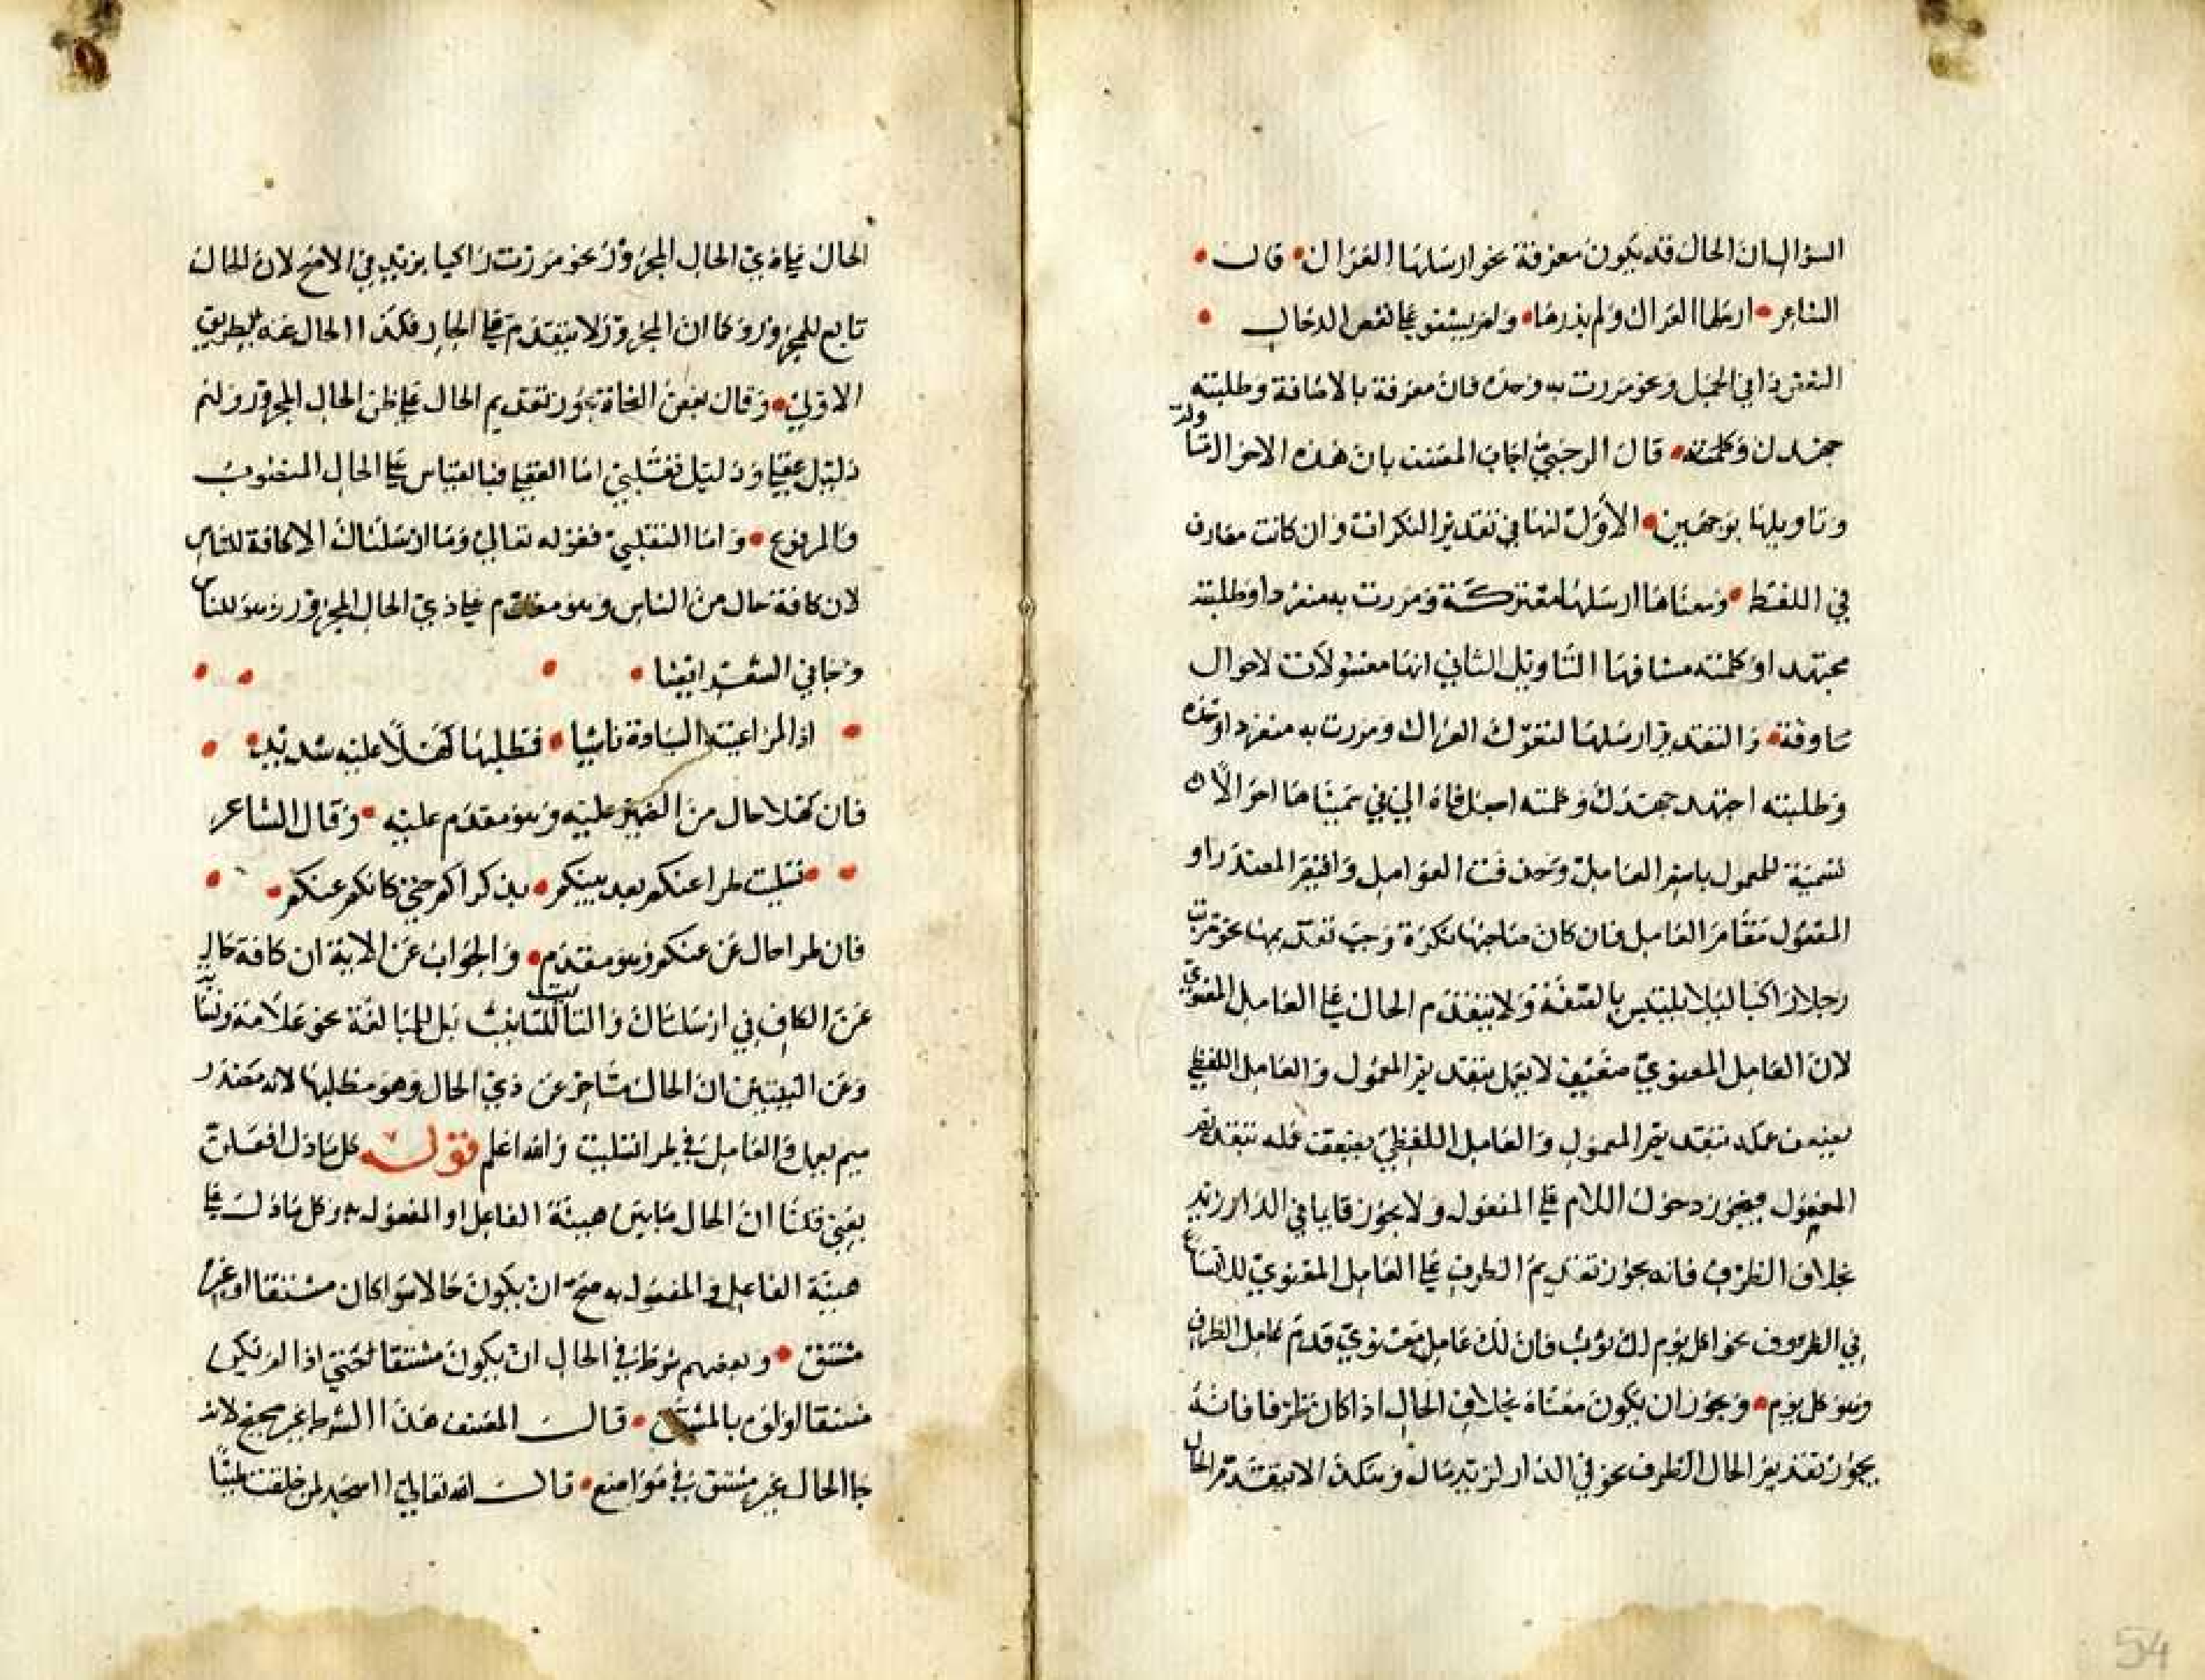 السؤال بان الحال قد يكون معرفة نحو ارسلها العراك قال
الشاعر ارسلها العراك ولم يذدها ولم يشفق على نغص الدخال
ونحو مررت به وحده فان معرفة بالاضافة وطلبته
جهدك وكلمته قال اجاب المصنف بان هذه الاحوال
وتاويلها بوجهين الاول انها في تقدير النكرات وان كانت معارف
في اللفظ ومعناها ارسلها معتركة ومررت به منفردا وطلبته
مجتهدا وكلمته مشافها التاويل الثاني انها معمولات لاحوال
والتقدير ارسلها تعترك العراك ومررت به منفردا وحده
وطلبته اجتهد جهدك وكلمته اجعل فاه الي في سميناها احوالا
تسمية للمعمول باسم العامل وحذفت العوامل واقيم المصدر او
المفعول مقام العامل فان كان صاحبها نكرة وجب تقديمها نحو مررت
رجلا راكبا ليلا يلتبس بالصفة ولا يتقدم الحال على العامل المعنوي
لان العامل المعنوي ضعيف لا يعمل بتقديم المعمول والعامل اللفظي
بتقديم المعمول والعامل اللفظي يضعف عمله بتقديم
المعمول فيجوز دخول اللام على المفعول ولا يجوز قايما في الدار زيد
بخلاف الظرف فانه يجوز تقديم الظرف على العامل المعنوي للاتساع
في الظروف نحو اكل يوم لك ثوب فان لك عامل معنوي قدم عامل الظرف
وهو كل يوم ويجوز ان يكون معناه بخلاف الحال اذا كان ظرفا فانه
يجوز تقديم الحال الظرف نحو في الدار لزيد مال وهكذا لا يتقدم الحال
الحال على ذي الحال المجرور نحو مررت راكبا بزيد في الاصح لان الحال
تابع للمجرور وكما ان المجرور لا يتقدم على الجار فكذا الحال عنه بطريق
الاولى وقال بعض النحاة يجوز تقديم الحال على ذي الحال المجرور ولهم
دليل عقلي ودليل نقلي اما العقلي فبالقياس على الحال المنصوب
والمرفوع واما النقلي فقوله تعالى وما ارسلناك الا كافة للناس
لان كافة حال من الناس وهو مقدم على ذي الحال المجرور وهو للناس
وجا في الشعر ايضا
اذا المرء اعيته السيادة ناشيا فمطلبها كهلا عليه شديد
فان كهلا حال من الضمير عليه وهو مقدم عليه وقال الشاعر
تسليت طرا عنكم بعد بينكم بذكراكم حتى كانكم عنكم
فان طرا حال عن عنكم وهو مقدم والجواب عن الاية ان كافة حال
عن الكاف في ارسلناك والتا ليست للتانيث بل للمبالغة نحو علامة ونسابة
وعن البيتين ان الحال متاخر عن ذي الحال وهو مطلبها لانه مصدر
ميم يعمل والعامل في طرا تسليت والله اعلم قوله كل ما دل
يعني قلنا ان الحال ما يبين هيئة الفاعل او المفعول به وكل ما دل على
هيئة الفاعل والمفعول به صح ان يكون حالا سوا كان مشتقا او غير
مشتق وبعضهم شرط في الحال ان يكون مشتقا حتى اذا لم يكن
مشتقا اول بالمشتق قال المصنف هذا الشرط غير صحيح لانه
جا الحال غير مشتق في مواضع قال الله تعالى ااسجد لمن خلقت طينا
54